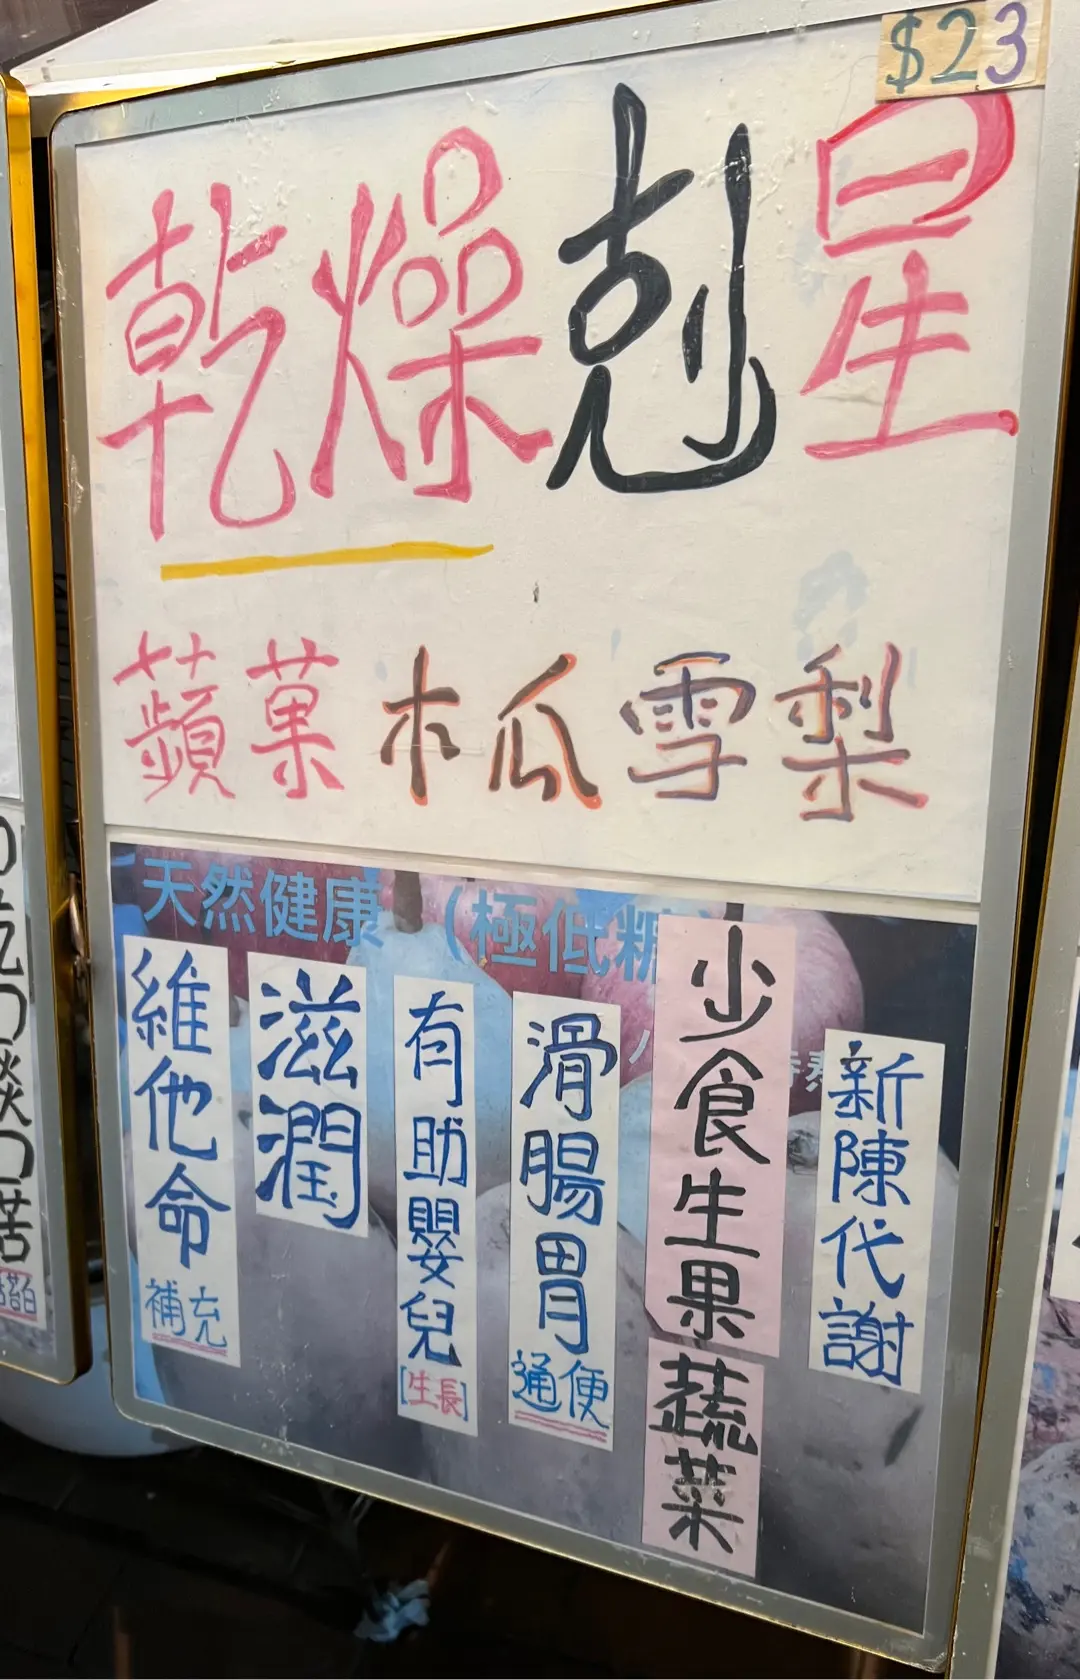 $23
乾燥剋星
蘋菓木瓜雪梨
天然健康（極低糖
維他命
補充
滋潤
有助嬰兒
[生長]
滑腸胃
通便
少食生果
蔬菜
新陳代謝